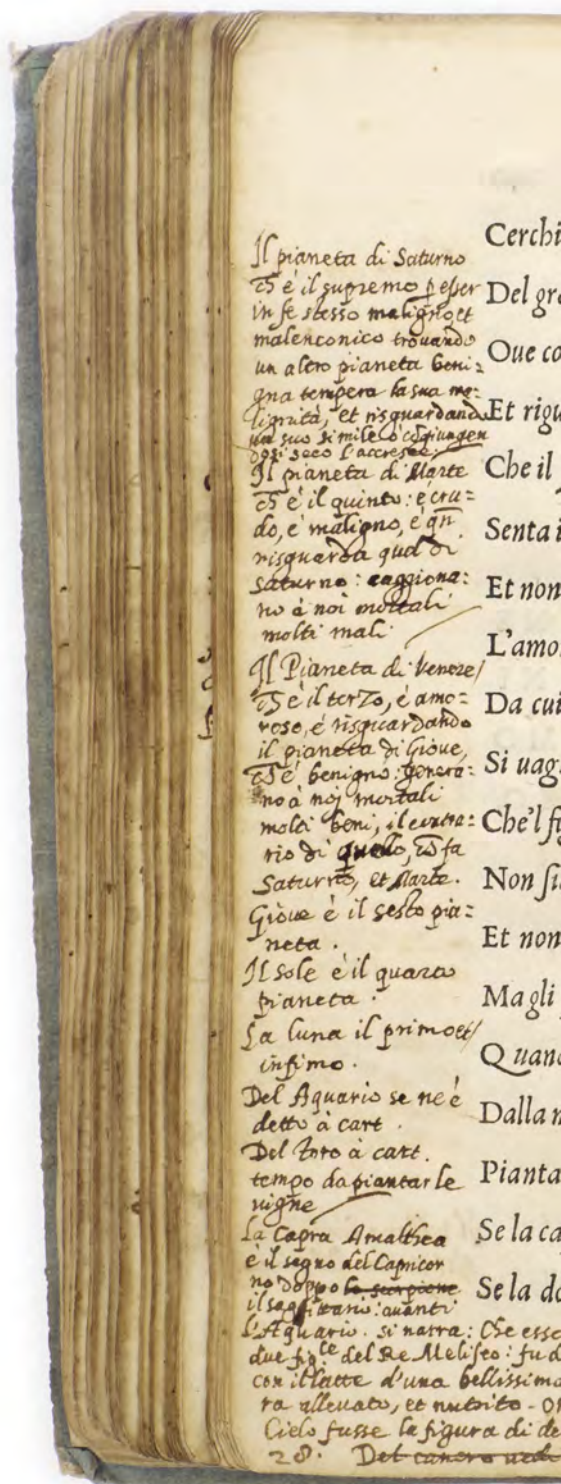 Il pianeta di Saturno
è il supremo p esser
in se stesso maligno et
malenconico trovando
un altro pianeta beni=
gna tempera la sua ma=
lignità, et risguardando
un suo simile ò cōgiungen
dosi seco l'accresce.
Il pianeta di Marte
è il quinto: è cru=
do, è maligno, è qn̄
risguarda quel di
Saturno: caggiona=
no à noi mortali
molti mali
Il Pianeta di Venere
è il terzo, è amo=
roso, é risguardando
il pianeta di Giove,
è benigno: genera=
no à noj mortali
molti beni, il contra=
rio di quello, fa
Saturno, et Marte.
Giove è il sesto pia=
neta.
Il Sole è il quarto
pianeta.
La luna il primo et
infimo.
Del Aquario se ne è
detto à cart.
Del Toro à cart.
tempo da piantar le
vigne
La Capra Amalthea
è il segno del Capricor
no doppo lo scorpione
il sagittario: avanti
l'Aquario. si narra: Che esse
due fig.le del Re Meliseo: fu d
con il latte d'una bellissima
ra allevato, et nutrito
Cielo fusse la figura di de
28. Del cancro vedi
Cerchi
Del gra
Oue co
Et rigu
Che il
Senta i
Et non
L'amo
Da cui
Si uag
Che'l fi
Non si
Et non
Ma gli
Quand
Dalla n
Pianta
Se la ca
Se la do